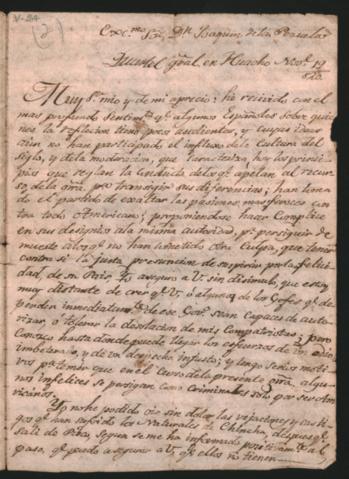 V-2A
Exc.mo Sor. Dn. Joaquin de la Pezuela
Quartel gral. en Huacho Nove. 19/820
Muy Sr. mio y de mi aprecio: he recivido con el
mas profundo Sentimto. qe. algunos Españoles sobre quie
nes la reflecion tiene poco asendiente, y cuyas ideas
aun no han participado el influxo de la Cultura del
Siglo, y de la moderacion, que Caracteriza hoy los princi
pios que reglan la conducta de los qe. apelan al recur
so de la grra. pra. transigir sus diferencias; han toma
do el partido de exaltar las pasiones mas feroces con
tra todo Americano, proponiendose hacer Complice
en sus designios a la misma autoridad, pa. perseguir de
muerte a los qe. no han cometido otra Culpa, que tener
contra sí la justa presuncion de suspirar por la felici
dad de su Pais. Yo aseguro a V. sin disimulo, que estoy
muy distante de creer qe. V. ó alguno de los Gefes qe. de
penden inmediatamte. de ese Govo. sean Capaces de auto
rizar, ó tolerar la desolacion de mis Compatriotas; pero
Conozco hasta donde puede llegar los esfuerzos de un odio
imbeterado, y de un despecho injusto; y tengo serios moti
vos pa. temer que en el Curso de la presente grra. algu
nos infelices se persigan como Criminales solo por ser Ame
ricanos.
Yo no he podido oir sin dolor las vejaciones y casti
gos qe. han sufrido los Naturales de Chincha, despues qe.
salí de Pisco, segun se me ha informado positivamte. al
paso, qe. puedo asegurar a V. qe. ellos no tienen